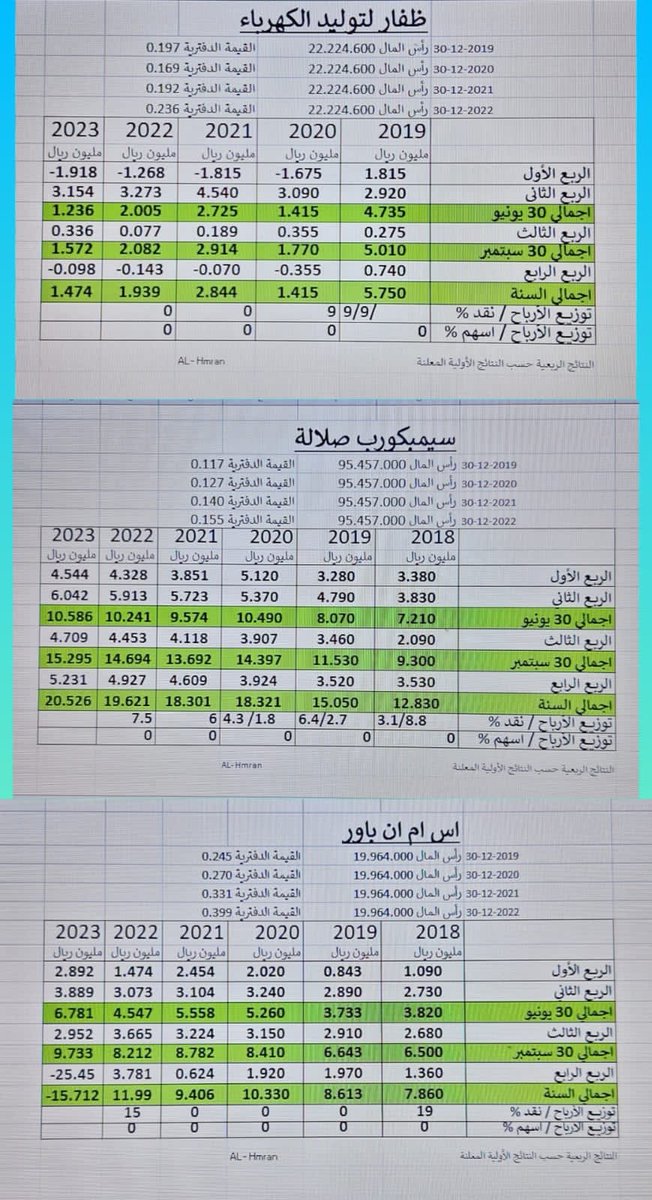 ظفار لتوليد الكهرباء
30-12-2019 رأس المال 22.224.600 القيمة الدفترية 0.197
30-12-2020 رأس المال 22.224.600 القيمة الدفترية 0.169
30-12-2021 رأس المال 22.224.600 القيمة الدفترية 0.192
30-12-2022 رأس المال 22.224.600 القيمة الدفترية 0.236
2019 2020 2021 2022 2023
مليون ريال مليون ريال مليون ريال مليون ريال مليون ريال
الربع الأول 1.815 -1.675 -1.815 -1.268 -1.918
الربع الثاني 2.920 3.090 4.540 3.273 3.154
اجمالي 30 يونيو 4.735 1.415 2.725 2.005 1.236
الربع الثالث 0.275 0.355 0.189 0.077 0.336
اجمالي 30 سبتمبر 5.010 1.770 2.914 2.082 1.572
الربع الرابع 0.740 -0.355 -0.070 -0.143 -0.098
اجمالي السنة 5.750 1.415 2.844 1.939 1.474
توزيع الأرباح / نقد % 9/9/ 9 0 0
توزيع الأرباح / اسهم % 0 0 0 0
النتائج الربعية حسب النتائج الأولية المعلنة AL-Hmran
سيمبكورب صلالة
30-12-2019 رأس المال 95.457.000 القيمة الدفترية 0.117
30-12-2020 رأس المال 95.457.000 القيمة الدفترية 0.127
30-12-2021 رأس المال 95.457.000 القيمة الدفترية 0.140
30-12-2022 رأس المال 95.457.000 القيمة الدفترية 0.155
2018 2019 2020 2021 2022 2023
مليون ريال مليون ريال مليون ريال مليون ريال مليون ريال مليون ريال
الربع الأول 3.380 3.280 5.120 3.851 4.328 4.544
الربع الثاني 3.830 4.790 5.370 5.723 5.913 6.042
اجمالي 30 يونيو 7.210 8.070 10.490 9.574 10.241 10.586
الربع الثالث 2.090 3.460 3.907 4.118 4.453 4.709
اجمالي 30 سبتمبر 9.300 11.530 14.397 13.692 14.694 15.295
الربع الرابع 3.530 3.520 3.924 4.609 4.927 5.231
اجمالي السنة 12.830 15.050 18.321 18.301 19.621 20.526
توزيع الأرباح / نقد % 3.1/8.8 6.4/2.7 4.3 /1.8 6 7.5
توزيع الأرباح / اسهم % 0 0 0 0 0
النتائج الربعية حسب النتائج الأولية المعلنة AL-Hmran
اس ام ان باور
30-12-2019 رأس المال 19.964.000 القيمة الدفترية 0.245
30-12-2020 رأس المال 19.964.000 القيمة الدفترية 0.270
30-12-2021 رأس المال 19.964.000 القيمة الدفترية 0.331
30-12-2022 رأس المال 19.964.000 القيمة الدفترية 0.399
2018 2019 2020 2021 2022 2023
مليون ريال مليون ريال مليون ريال مليون ريال مليون ريال مليون ريال
الربع الأول 1.090 0.843 2.020 2.454 1.474 2.892
الربع الثاني 2.730 2.890 3.240 3.104 3.073 3.889
اجمالي 30 يونيو 3.820 3.733 5.260 5.558 4.547 6.781
الربع الثالث 2.680 2.910 3.150 3.224 3.665 2.952
اجمالي 30 سبتمبر 6.500 6.643 8.410 8.782 8.212 9.733
الربع الرابع 1.360 1.970 1.920 0.624 3.781 -25.45
اجمالي السنة 7.860 8.613 10.330 9.406 11.99 -15.712
توزيع الأرباح / نقد % 19 0 0 0 15
توزيع الأرباح / اسهم % 0 0 0 0 0
النتائج الربعية حسب النتائج الأولية المعلنة AL-Hmran